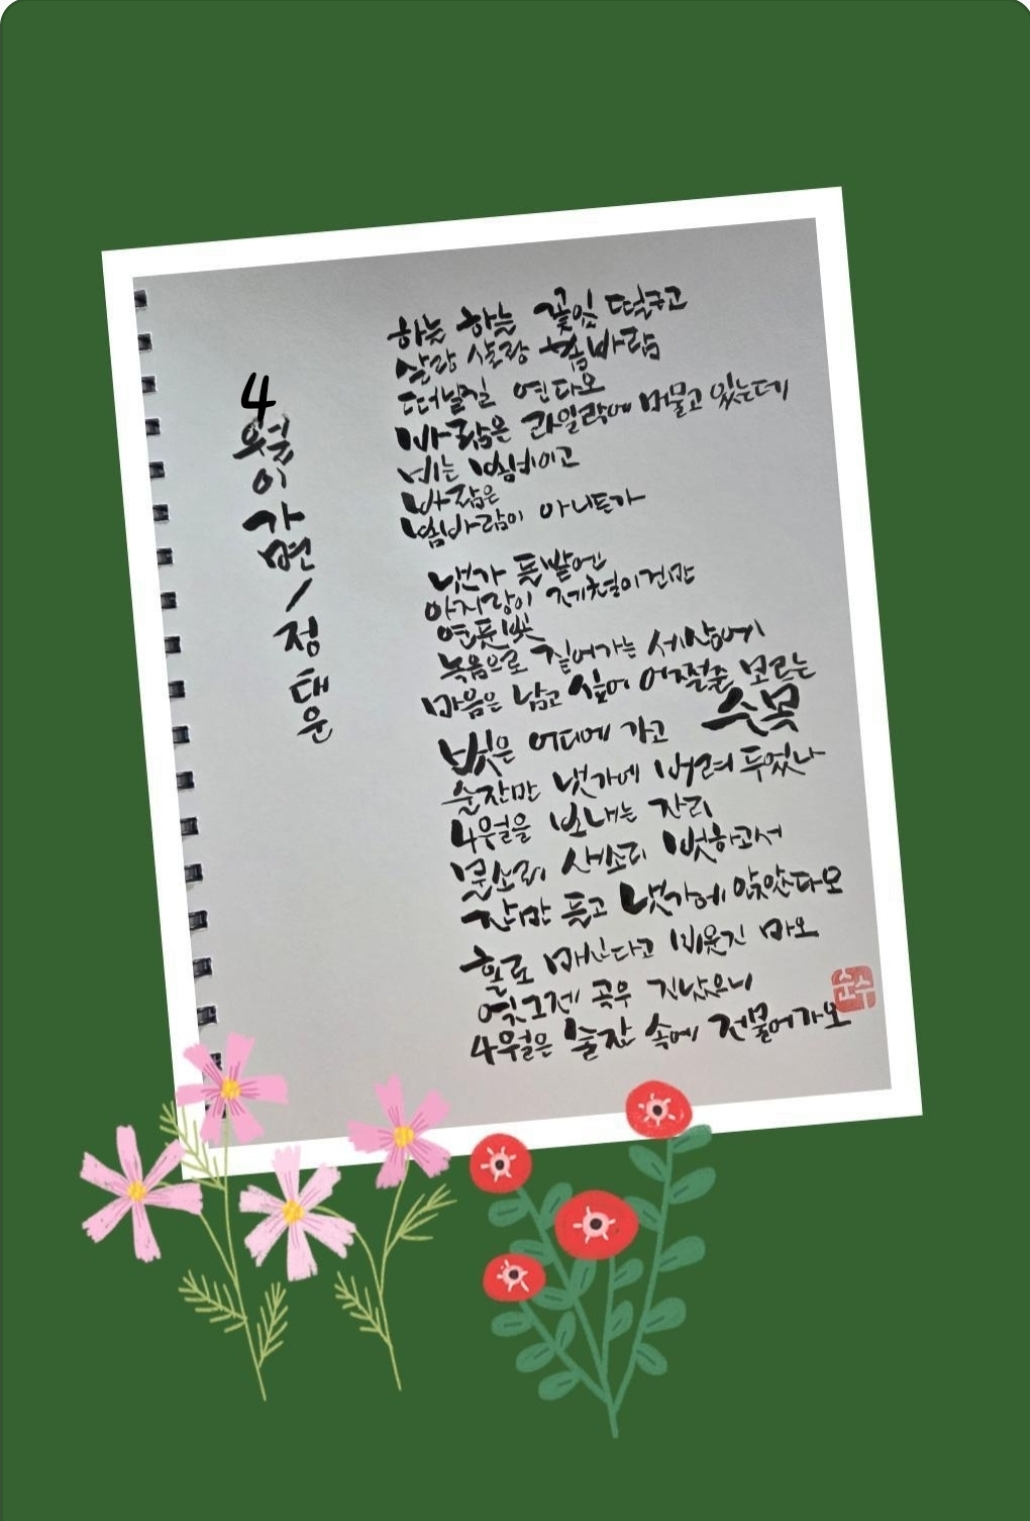 4월이 가면 / 정태운
하늘 하늘 꽃잎 떨구고
살랑 살랑 봄바람
떠날길 연다오
바람은 라일락에 머물고 있는데
비는 봄비이고
바람은
봄바람이 아니든가
냇가 풀밭엔
아지랑이 제철이건만
연둣빛
녹음으로 짙어가는 세상에
마음은 남고 싶어 어쩔줄 모르는
수목
벗은 어디에 가고
술잔만 냇가에 버려 두었나
4월을 보내는 자리
물소리 새소리 벗하고서
잔만 들고 냇가에 앉았다오
홀로 마신다고 비웃진 마오
엊그제 곡우 지났으니
4월은 술잔 속에 저물어가오
순수